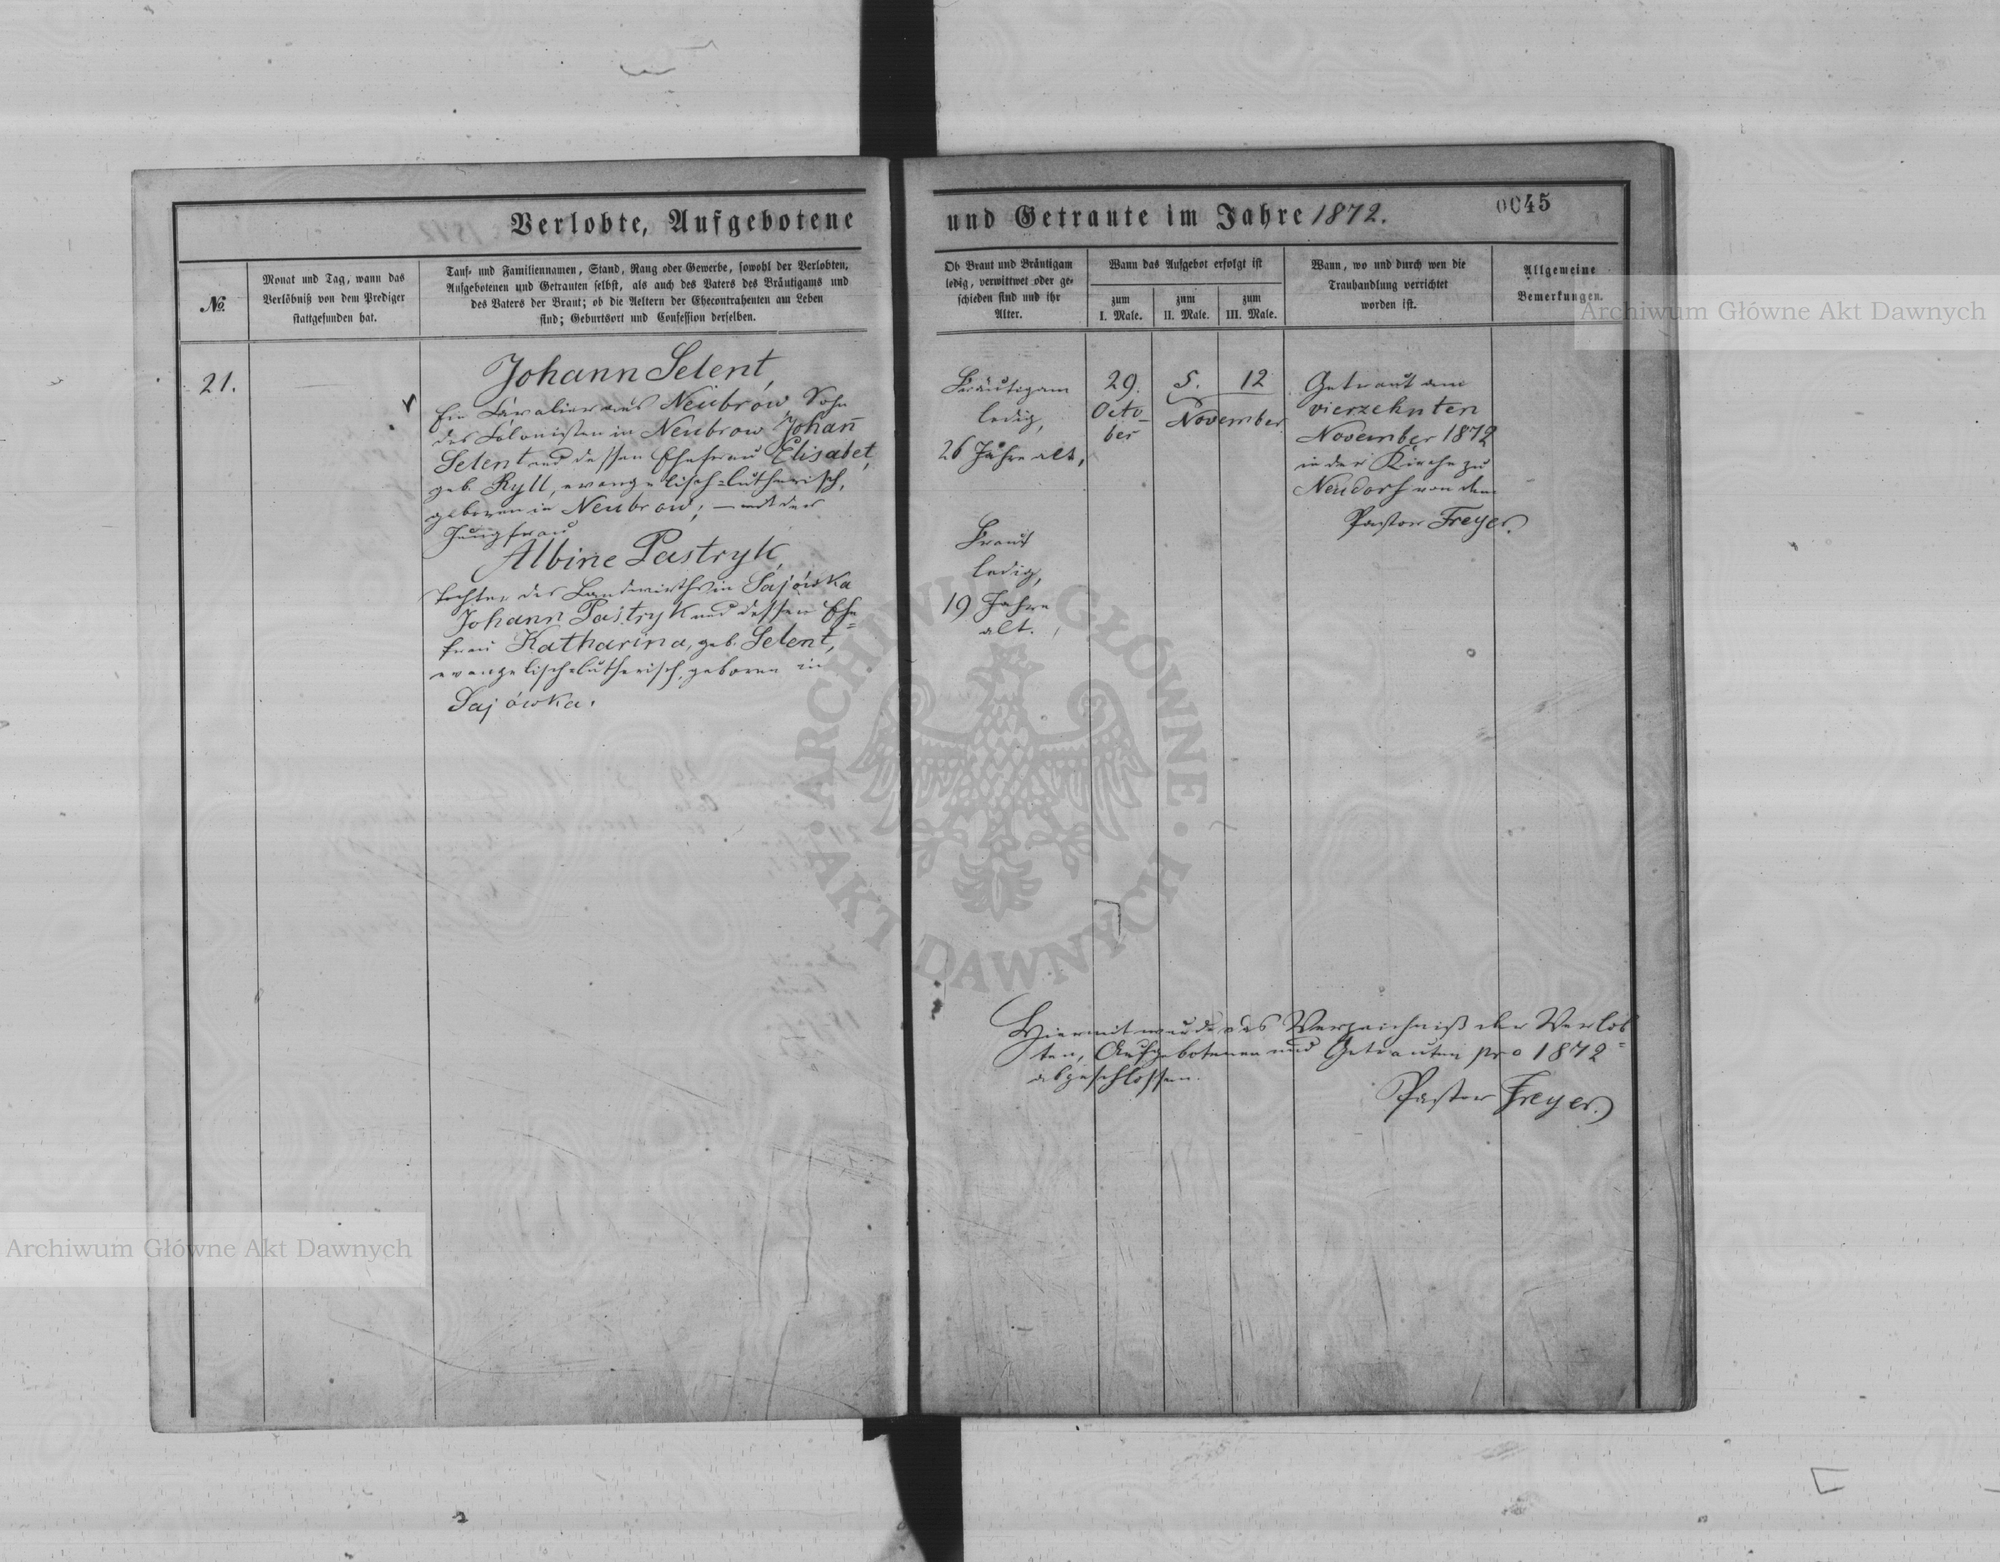 Verlobte, Aufgebotene und Getraute im Jahre 1872.
0045
№
Monat und Tag, wann das
Verlöbniß von dem Prediger
stattgefunden hat.
Tauf- und Familiennamen, Stand, Rang oder Gewerbe, sowohl der Verlobten,
Aufgebotenen und Getrauten selbst, als auch des Vaters des Bräutigams und
des Vaters der Braut; ob die Aeltern der Ehecontrahenten am Leben
sind; Geburtsort und Confession derselben.
Ob Braut und Bräutigam
ledig, verwittwet oder ge-
schieden sind und ihr
Alter.
Wann das Aufgebot erfolgt ist
zum
I. Male.
zum
II. Male.
zum
III. Male.
Wann, wo und durch wen die
Trauhandlung verrichtet
worden ist.
Allgemeine
Bemerkungen.
21.
Johann Selent,
Ein Cavalier aus Neubrow, Sohn
des Colonisten in Neubrow Johan̄
Selent und dessen Ehefrau Elisabet,
geb. Ryll, evangelisch-lutherisch,
geboren in Neubrow; — mit der
Jungfrau
Albine Pastryk,
Tochter des Landwirths in Sajówka
Johann Pastryk und dessen Ehe=
frau Katharina, geb. Selent,
evangelisch-lutherisch, geboren in
Sajówka.
Bräutigam
ledig,
26 Jahre alt,
Braut
ledig,
19 Jahre
alt.
29.
Octo-
ber
5. 12
November
Getraut am
vierzehnten
November 1872
in der Kirche zu
Neudorf von dem
Pastor Freyer.
Hiermit wurde das Verzeichniß der Verlob=
ten, Aufgebotenen und Getrauten pro 1872
abgeschlossen.
Pastor Freyer.
Archiwum Główne Akt Dawnych
ARCHIWUM GŁÓWNE
AKT DAWNYCH
Archiwum Główne Akt Dawnych